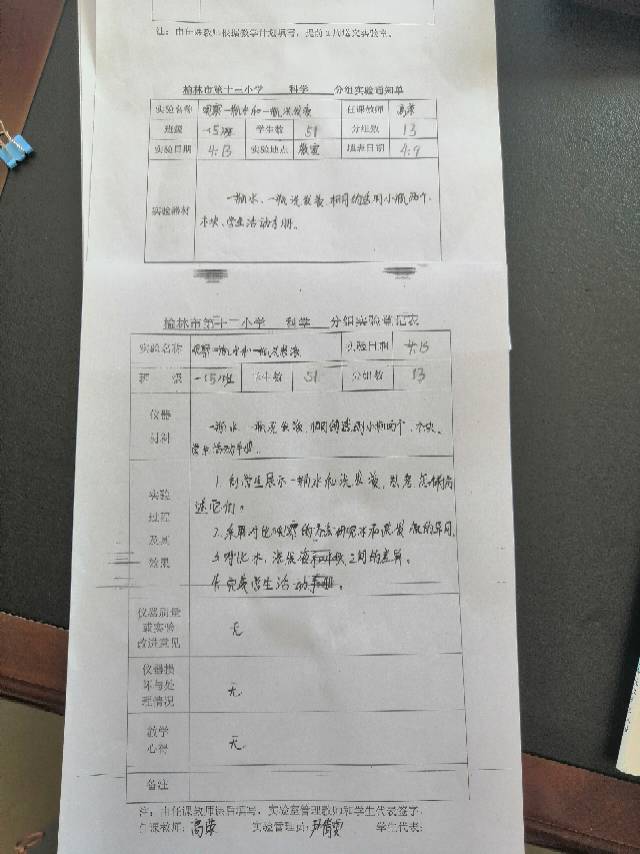 注：由任课教师根据教学计划填写，提前2天送交实验室。
榆林市第十二小学 科学 分组实验通知单
实验名称 观察一瓶水和一瓶洗发液 任课教师 高荣
班级 一5班 学生数 51 分组数 13
实验日期 4.13 实验地点 教室 填表日期 4.9
实验器材 一瓶水、一瓶洗发液、相同的透明小瓶两个、
木块、学生活动手册。
榆林市第十二小学 科学 分组实验登记表
实验名称 观察一瓶水和一瓶洗发液 实验日期 4.13
班 级 一5班 学生数 51 分组数 13
仪器
材料
一瓶水、一瓶洗发液、相同的透明小瓶两个、木块、
学生活动手册。
实验
过程
及其
效果
1.向学生展示一瓶水和洗发液，思考怎样描
述它们。
2.采用对比观察的方法研究水和洗发液的异同。
3.对比水、洗发液和木块之间的差异。
4.完成学生活动手册。
仪器质量
或实验
改进意见
无
仪器损
坏与处
理情况
无
教学
心得
无
备注
注：由任课教师课后填写，实验室管理教师和学生代表签字。
任课教师：高荣 实验管理员： 学生代表：